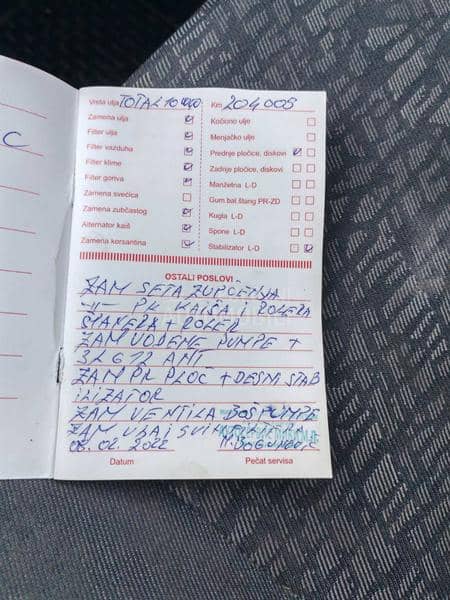 C
Vrsta ulja TOTAL 10W40 Km 204005
Zamena ulja Kočiono ulje
Filter ulja Menjačko ulje
Filter vazduha Prednje pločice, diskovi
Filter klime Zadnje pločice, diskovi
Filter goriva Manžetna L-D
Zamena svećica Gum.bal.štang PR-ZD
Zamena zubčastog Kugla L-D
Alternator kaiš Spone L-D
Zamena korsantina Stabilizator L-D
OSTALI POSLOVI
ZAM SETA ZUPČENJA
-11- PK KAIŠA I ROLERA
ŠTANERA + ROLER
ZAM VODENE PUMPE +
3L G12 ANT
ZAM PR PLOČ + DESNI STAB
ILIZATOR
ZAM VENTILA BOŠ PUMPE
ZAM ULJA I SVI
08.02.2022
Datum Pečat servisa